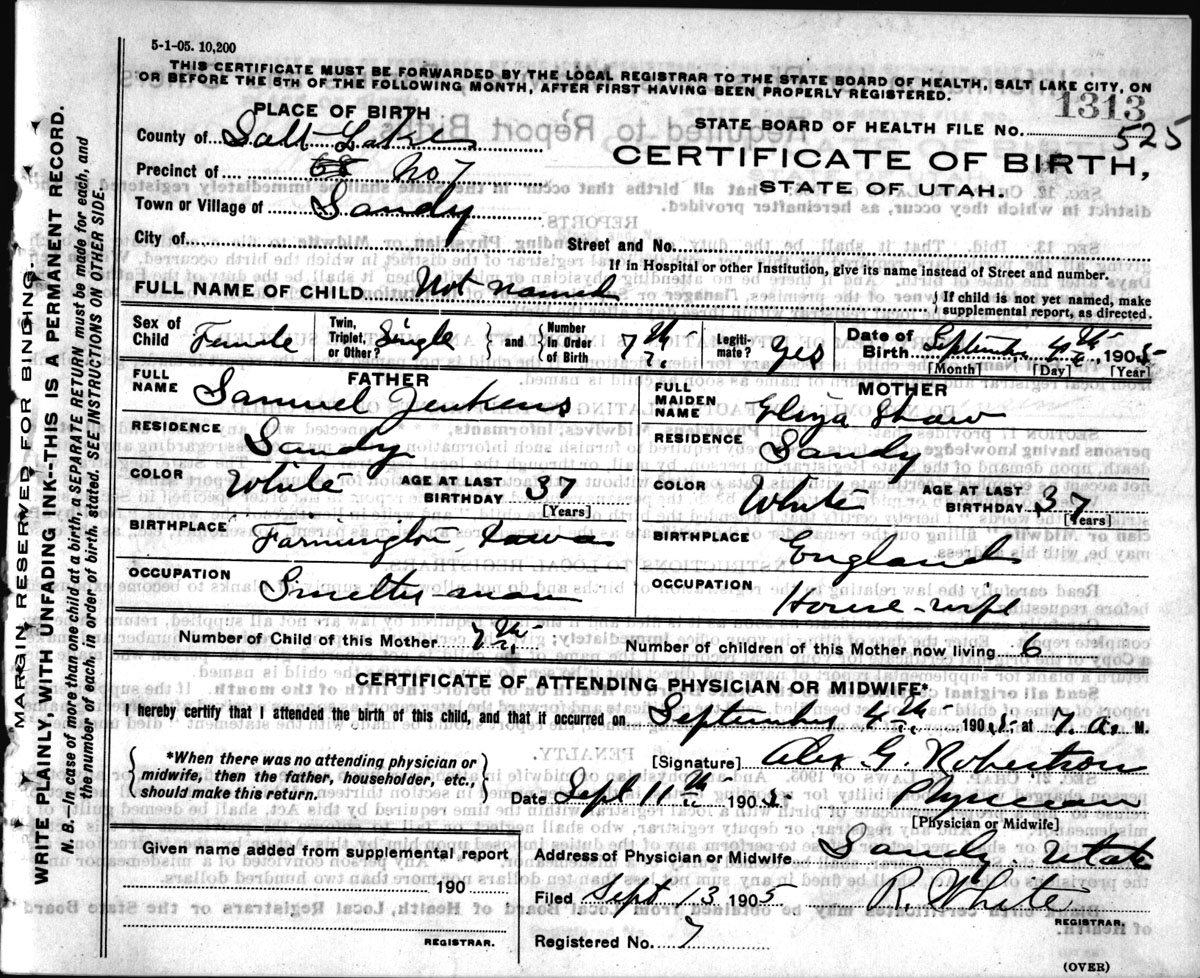 5-1-05. 10,200
THIS CERTIFICATE MUST BE FORWARDED BY THE LOCAL REGISTRAR TO THE STATE BOARD OF HEALTH, SALT LAKE CITY, ON
OR BEFORE THE 5TH OF THE FOLLOWING MONTH, AFTER FIRST HAVING BEEN PROPERLY REGISTERED.
PLACE OF BIRTH
County of Salt Lake
Precinct of No 7
Town or Village of Sandy
City of
1313
STATE BOARD OF HEALTH FILE No. 525
CERTIFICATE OF BIRTH,
STATE OF UTAH.
Street and No.
If in Hospital or other Institution, give its name instead of Street and number.
FULL NAME OF CHILD Not named
If child is not yet named, make
supplemental report, as directed.
Sex of Child Female
Twin, Triplet, or Other? Single
and Number in Order of Birth 7th
Legitimate? Yes
Date of Birth September 4th, 1905
[Month] [Day] [Year]
FATHER
FULL NAME Samuel Jenkens
RESIDENCE Sandy
COLOR White AGE AT LAST BIRTHDAY 37
[Years]
BIRTHPLACE Farmington Iowa
OCCUPATION Smelter man
MOTHER
FULL MAIDEN NAME Eliza Shaw
RESIDENCE Sandy
COLOR White AGE AT LAST BIRTHDAY 37
[Years]
BIRTHPLACE England
OCCUPATION House-wife
Number of Child of this Mother 7th
Number of children of this Mother now living 6
CERTIFICATE OF ATTENDING PHYSICIAN OR MIDWIFE*
I hereby certify that I attended the birth of this child, and that it occurred on September 4th 1905 at 7. a. M.
*When there was no attending physician or
midwife, then the father, householder, etc.,
should make this return.
[Signature] Alex G. Robertson
Date Sept 11th 1905. Physician
[Physician or Midwife]
Given name added from supplemental report
190
REGISTRAR.
Address of Physician or Midwife Sandy. Utah
Filed Sept 13 1905 R. White
REGISTRAR.
Registered No. 7
(OVER)
MARGIN RESERVED FOR BINDING.
WRITE PLAINLY, WITH UNFADING INK--THIS IS A PERMANENT RECORD.
N. B.--In case of more than one child at a birth, a SEPARATE RETURN must be made for each, and
the number of each, in order of birth, stated. SEE INSTRUCTIONS ON OTHER SIDE.